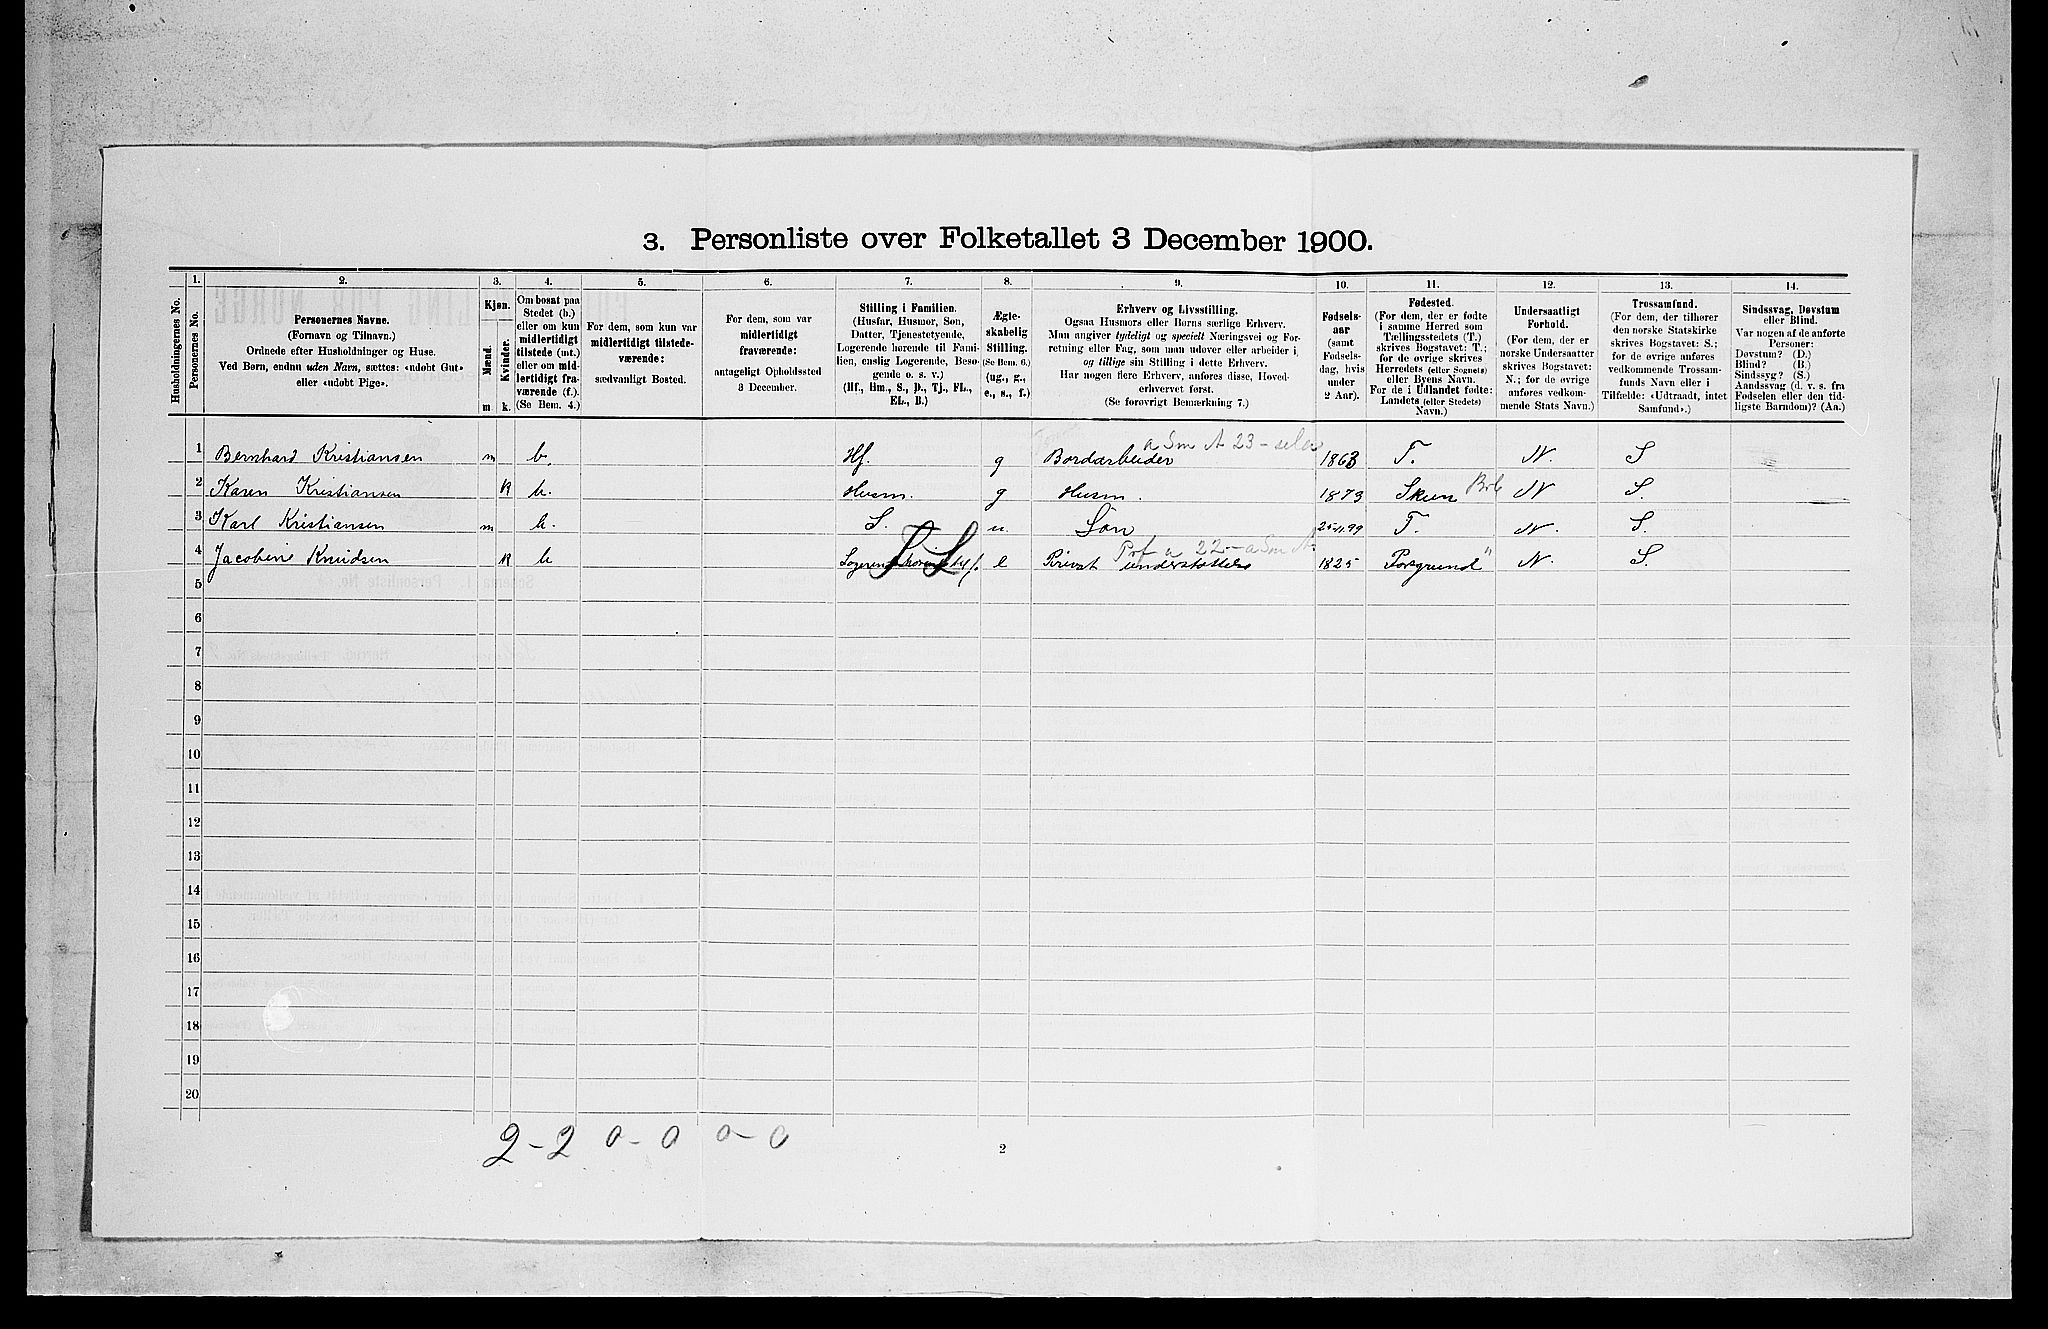 3. Personliste over Folketallet 3 December 1900.
Husholdningernes No.
1. Personernes No.
2. Personernes Navne. (Fornavn og Tilnavn.) Ordnede efter Husholdninger og Huse. Ved Børn, endnu uden Navn, sættes: «udøbt Gut» eller «udøbt Pige».
3. Kjøn. Mænd. m Kvinder. k.
4. Om bosat paa Stedet (b.) eller om kun midlertidigt tilstede (mt.) eller om midlertidigt fraværende (f.). (Se Bem. 4.)
5. For dem, som kun var midlertidigt tilstedeværende: sædvanligt Bosted.
6. For dem, som var midlertidigt fraværende: antageligt Opholdssted 3 December.
7. Stilling i Familien. (Husfar, Husmor, Søn, Datter, Tjenestetyende, Logerende hørende til Familien, enslig Logerende, Besøgende o. s. v.) (Hf., Hm., S., D., Tj., FL., EL., B.)
8. Ægteskabelig Stilling. (Se Bem. 6.) (ug., g., e., s., f.)
9. Erhverv og Livsstilling. Ogsaa Husmors eller Børns særlige Erhverv. Man angiver tydeligt og specielt Næringsvei og Forretning eller Fag, som man udøver eller arbeider i, og tillige sin Stilling i dette Erhverv. Har nogen flere Erhverv, anføres disse, Hovederhvervet først. (Se forøvrigt Bemærkning 7.)
10. Fødselsaar (samt Fødselsdag, hvis under 2 Aar).
11. Fødested. (For dem, der er fødte i samme Herred som Tællingsstedets (T.) skrives Bogstavet: T.; for de øvrige skrives Herredets (eller Sognets) eller Byens Navn. For de i Udlandet fødte: Landets (eller Stedets) Navn.)
12. Undersaatligt Forhold. (For dem, der er norske Undersaatter skrives Bogstavet: N.; for de øvrige anføres vedkommende Stats Navn.)
13. Trossamfund. (For dem, der tilhører den norske Statskirke skrives Bogstavet: S.; for de øvrige anføres vedkommende Trossamfunds Navn eller i Tilfælde: «Udtraadt, intet Samfund».)
14. Sindssvag, Døvstum eller Blind. Var nogen af de anførte Personer: Døvstum? (D.) Blind? (B.) Sindssyg? (S.) Aandssvag (d. v. s. fra Fødselen eller den tidligste Barndom)? (Aa.)
a Sm A 23 -
1 Bernhard Kristiansen m b. Hf. g Bordarbeider 1863 T. N. S
2 Karen Kristiansen k b. Husm. g Husm. 1873 Skien N S.
3 Karl Kristiansen m b. S. u. Søn 25/11 99 T. N. S.
a 22 - a Sm A
4 Jacobine Knudsen k b e Privat understøttelse 1825 Porsgrund N. S.
5
6
7
8
9
10
11
12
13
14
15
16
17
18
19
20
2 - 2 0 - 0 0 - 0
2